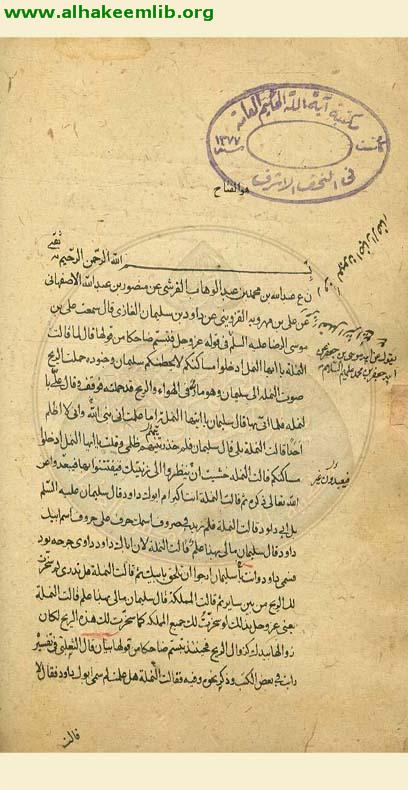 www.alhakeemlib.org
مكتبة آية الله الحكيم العامة
تأسست سنة ١٣٧٧
في النجف الاشرف
هو الفتاح
بسم الله الرحمن الرحيم
عبدالله بن محمد بن عبد الوهاب القرشي عن منصور بن عبدالله الاصفهاني
عن علي بن مهرويه القزويني عن داود بن سليمان الغازي قال سمعت علي بن
موسى الرضا عليه السلم في قوله عز وجل فتبسم ضاحكا من قولها قال لما قالت
النملة يا ايها النمل ادخلوا مساكنكم لا يحطمنكم سليمان وجنوده حملت الريح
صوت النملة الى سليمان وهو مار في الهواء والريح قد حملته فوقف وقال علي با
لنملة فلما اتى بها قال سليمان يا ايتها النملة اما علمت اني نبي الله واني لا اظلم
احدا قالت النملة بلى قال سليمان فلم حذرتنيهم ظلمي وقلت يا ايها النمل ادخلوا
مساكنكم قالت النملة خشيت ان ينظروا الى زينتك فيفتتنوا بها فيبعدوا عن
الله تعالى ذكره ثم قالت النملة انت اكبر ام ابوك داود قال سليمان عليه السلم
بل ابي داود قالت النملة فلم زيد في حروف اسمك حرف على حروف اسم ابيك
داود قال سليمان مالي بهذا علم قالت النملة لان اباك داود داوى جرحه بود
فسمي داود وانت يا سليمان ارجوا ان تلحق بابيك ثم قالت النملة هل تدري لم سخرت
لك الريح من بين ساير المملكة قال سليمان مالي بهذا علم قالت النملة
يعني عز وجل بذلك لو سخرت لك جميع المملكة كما سخرت لك هذه الريح لكان
زوالها من يدك كزوال الريح فحينئذ تبسم ضاحكا من قولها بيان قال الثعلبي في تفسيره
رايت في بعض الكتب وذكر نحوه وفيه فقالت النملة هل علمت لم سمي ابوك داود فقال لا
قالت